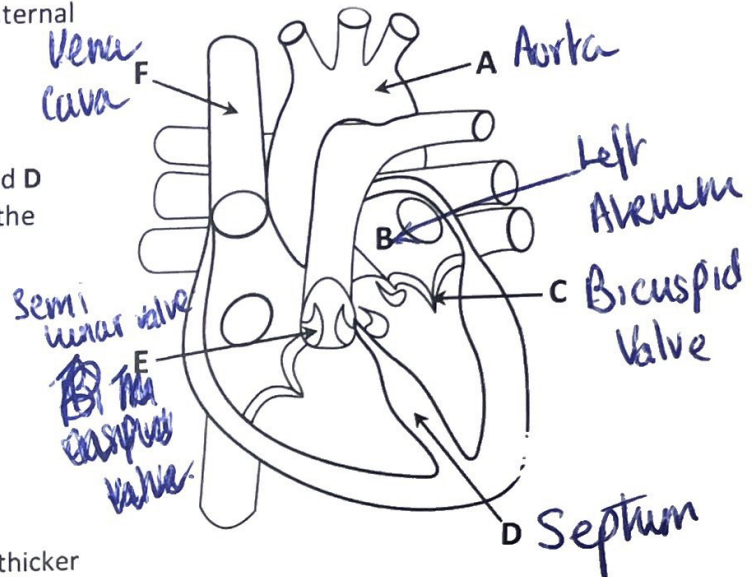 ternal
Vena
Cava
F
A Aorta
d D
the
Left
Atrium
B
C Bicuspid
Valve
Semi
lunar valve
E
Tri
cuspid
valve
D Septum
thicker